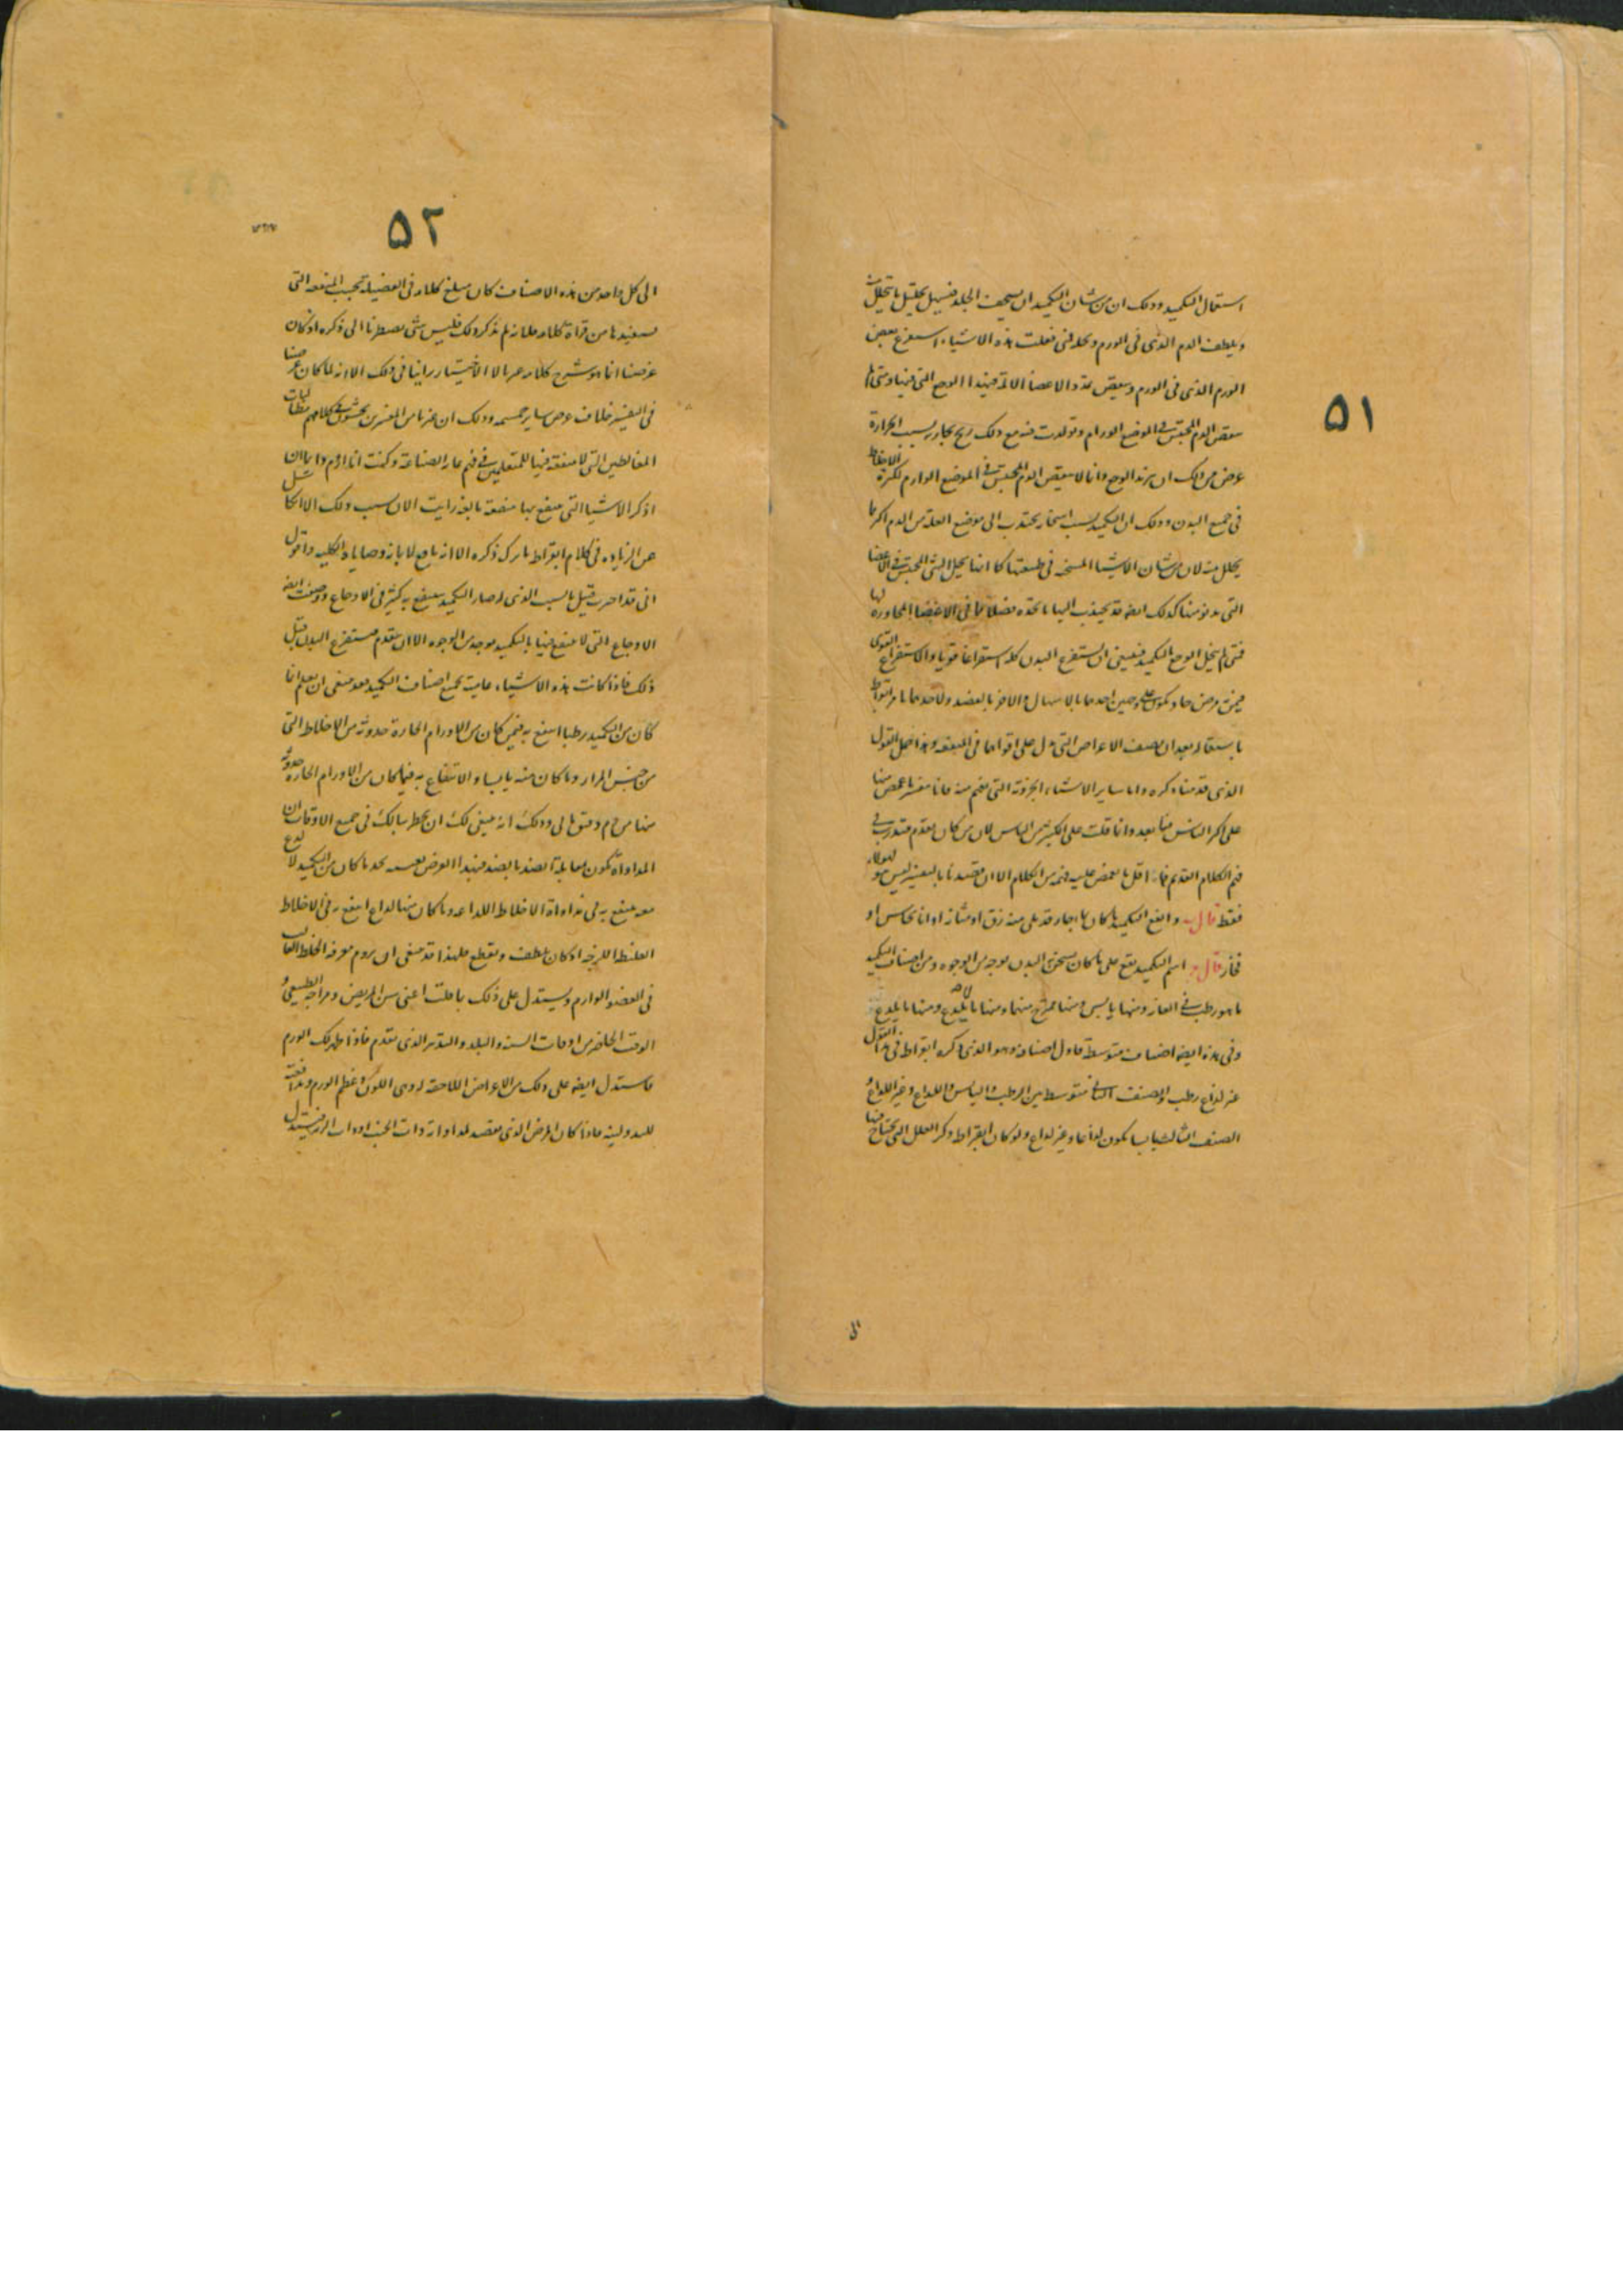 ٥١
استعمال التكميد وذلك ان من شان التكميد ان يسخف الجلد فيسهل تحليل ما يتحلل منه
ويلطف الدم الذى فى الورم ويحلله فمتى فعلت هذه الاشياء استفرغ بعض
الورم الذى فى الورم ونقص تمدد الاعضا الالمة فيهدا الوجع التى فيها ومتى لم
ينقص الدم المحتبس فى الموضع الوارم وتولدت منه مع ذلك ريح بخارية بسبب الحرارة
عرض من ذلك ان يزيد الوجع وانما لا ينقص الدم المحتبس فى الموضع الوارم لكثرة الاخلاط
فى جميع البدن وذلك ان التكميد بسبب اسخانه يجتذب الى موضع العلة من الدم اكثر مما
يحلل منه لان من شان الاشيا المسخنه فى طبيعتها كما انها تحلل الشى المحتبس فى الاعضا
التى تدنو منها كذلك ايضه قد يجذب اليها ما تجده فضلا مما فى الاعضا المجاورة لها
فمتى لم ينحل الوجع بالتكميد فينبغى ان يستفرغ البدن كله استفراغا قويا والاستفراغ القوى
فيمن مرض حاد يكون على وجهين احدهما بالاسهال والاخر بالفصد ولاحدهما يامر ابقراط
باستعماله بعد ان يصف الاعراض التى تدل على اقواهما فى المنفعه وهذا جمل القول
الذى قدمنا ذكره واما ساير الاشياء الجزوية التى تفهم منه فانا مفسر ما غمض منها
على اكثر الناس فيما بعد وانما قلت على الكثير من الناس لان من كان تقدم فتدرب فى
فهم الكلام القديم فما اقل ما يغمض عليه فهمه من الكلام الا ان قصدنا بالتفسير ليس هو لهولاء
فقط قال وانفع التكميد ما كان بماء حار قد ملى منه زق او مثانة او انا نحاس او
فخار قال ج اسم التكميد يقع على ما كان يسخن البدن بوجه من الوجوه ومن اصناف التكميد
ما هو رطب فى الغاز ومنها يابس ومنها ممتزج منهما ومنها ما يلذع ومنها ما لا يلذع
وفى هذه ايضه اصناف متوسطة فاول اصنافه وهو الذى ذكره ابقراط فى هذا القول
غير لذاع رطب والصنف الثانى متوسط بين الرطب واليابس واللذاع وغير اللذاع
الصنف الثالث يابسا يكون لذاعا وغير لذاع ولو كان ابقراط ذكر العلل التى يحتاج فيها
الى
٥٢
الى كل واحد من هذه الاصناف كان مبلغ كلامه فى الفضيلة بحسب المنفعه التى
نستفيدها من قراة كلامه فلما لم يذكر ذلك فليس شى يضطرنا الى ذكره اذ كان
غرضنا انما هو شرح كلامه راينا فى ذلك الا انه لما كان غرضنا
فى التفسير خلاف غرض ساير وذلك ان غيرنا من المفسرين يحشون كلامهم
المغالطين التى لا منفعة فيها للمتعلمين فى فهم هذه الصناعة وكنت انا اروم دايما ان
اذكر الاشيا التى ينتفع بها منفعة بالغه رايت الان بسبب ذلك الا
عن الزيادة فى كلام ابقراط ما ترك ذكره الا انه تابع لابانة وصاياه الكليه واقول
انى قد اخبرت قبيل بالسبب الذى له صار التكميد ينتفع به كثير فى الاوجاع ووصفت ايضه
الاوجاع التى لا ينتفع فيها بالتكميد بوجه من الوجوه الا ان يتقدم مستفرغ البدن قبل
ذلك فاذا كانت هذه الاشياء عامية لجميع اصناف التكميد فقد ينبغى ان يعلم انما
كان من التكميد رطبا انتفع به فيمن كان من الاورام الحارة حدوثه من الاخلاط التى
من جنس المرار وما كان منه يابسا والانتفاع به فيما كان من الاورام الحاره حدوثه
منها من دم دقيق مالى وذلك انه ينبغى لك ان يخطر ببالك فى جميع الاوقات ان
المداواة تكون بمقابلة الضد بالضد فبهذا الغرض نجد ما كان من التكميد لا لذع
معه ينتفع به فى مداواة الاخلاط اللذاعه وما كان منها لذاع انتفع به فى الاخلاط
الغليظه اللزجه اذ كان يلطف ويقطع فلهذا قد ينبغى ان يروم معرفه الخلط الغالب
فى العضو الوارم ويستدل على ذلك بما قلت اعنى سن المريض ومزاجه الطبيعى و
الوقت الحاضر من اوقات السنة والبلد والتدبير الذى تقدم فاذا ظهر لك الورم
فاستدل ايضه على ذلك من الاعراض اللاحقة له وهى اللون وعظم الورم ومدافعته
لليد ولينه فاذا كان المرض الذى تقصد لمداواته ذات الجنب او ذات الرية فتستدل